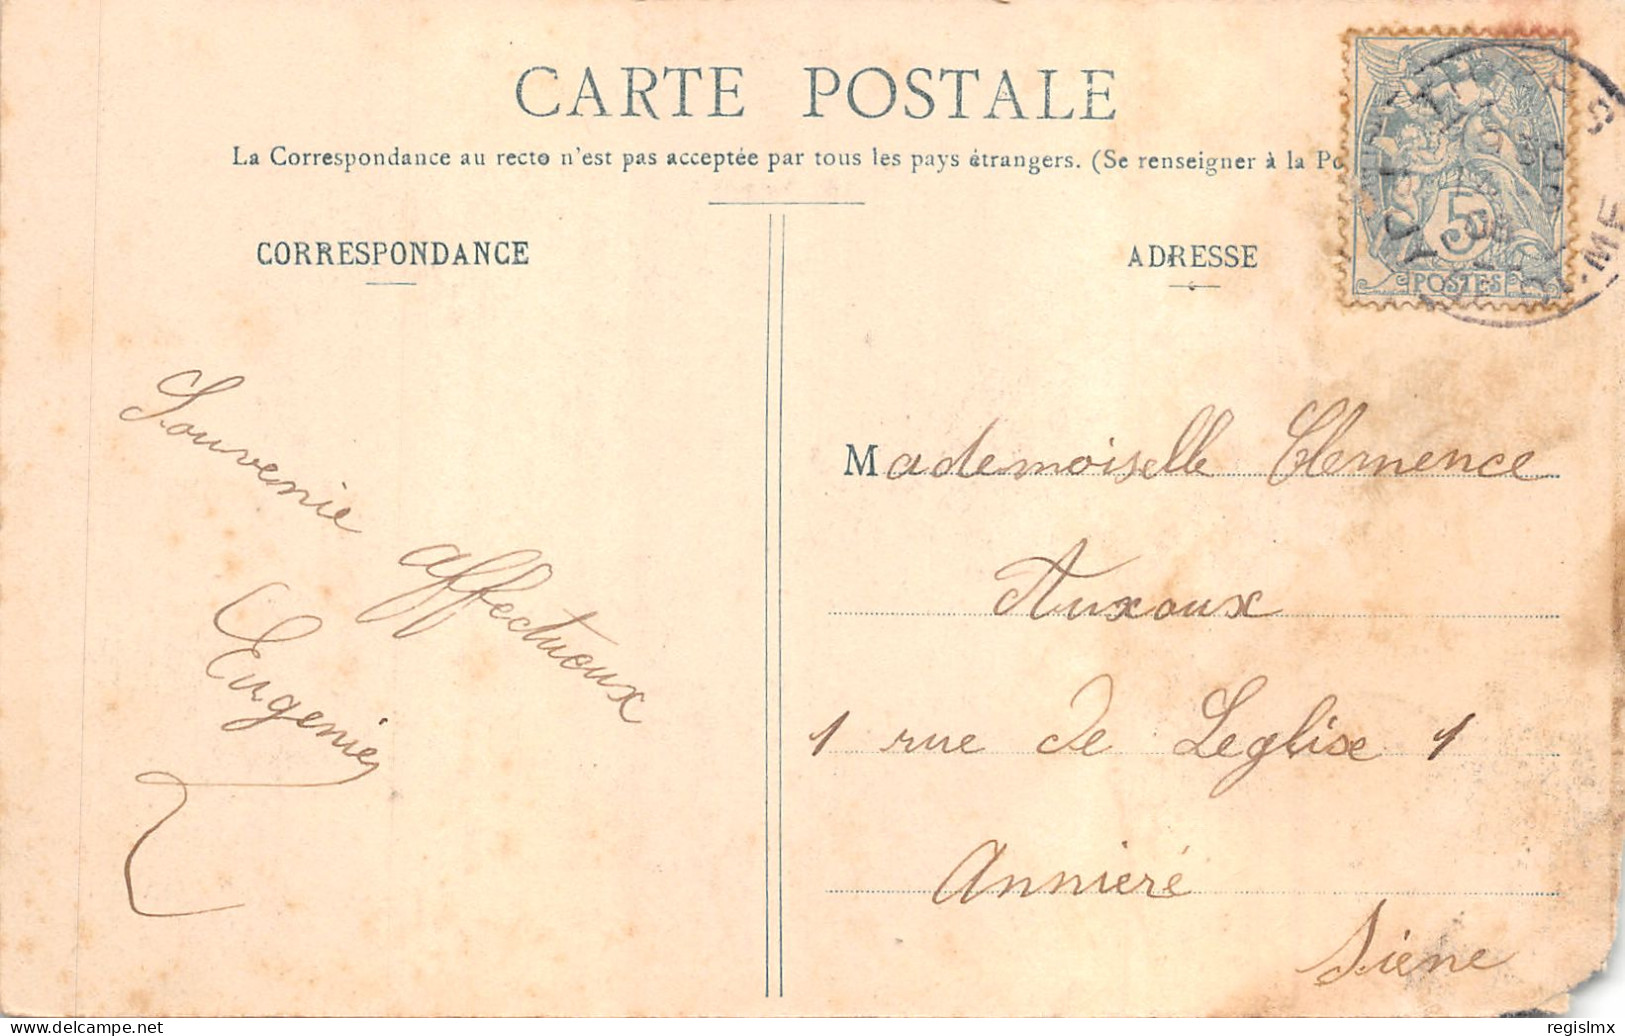 CARTE POSTALE
La Correspondance au recto n'est pas acceptée par tous les pays étrangers. (Se renseigner à la Po
CORRESPONDANCE
ADRESSE
5
POSTES
Souvenie
affectueux
Eugenie
Mademoiselle Clemence
Auxoux
1 rue de Leglise 1
Annieré
Siene
delcampe.net
regislmx